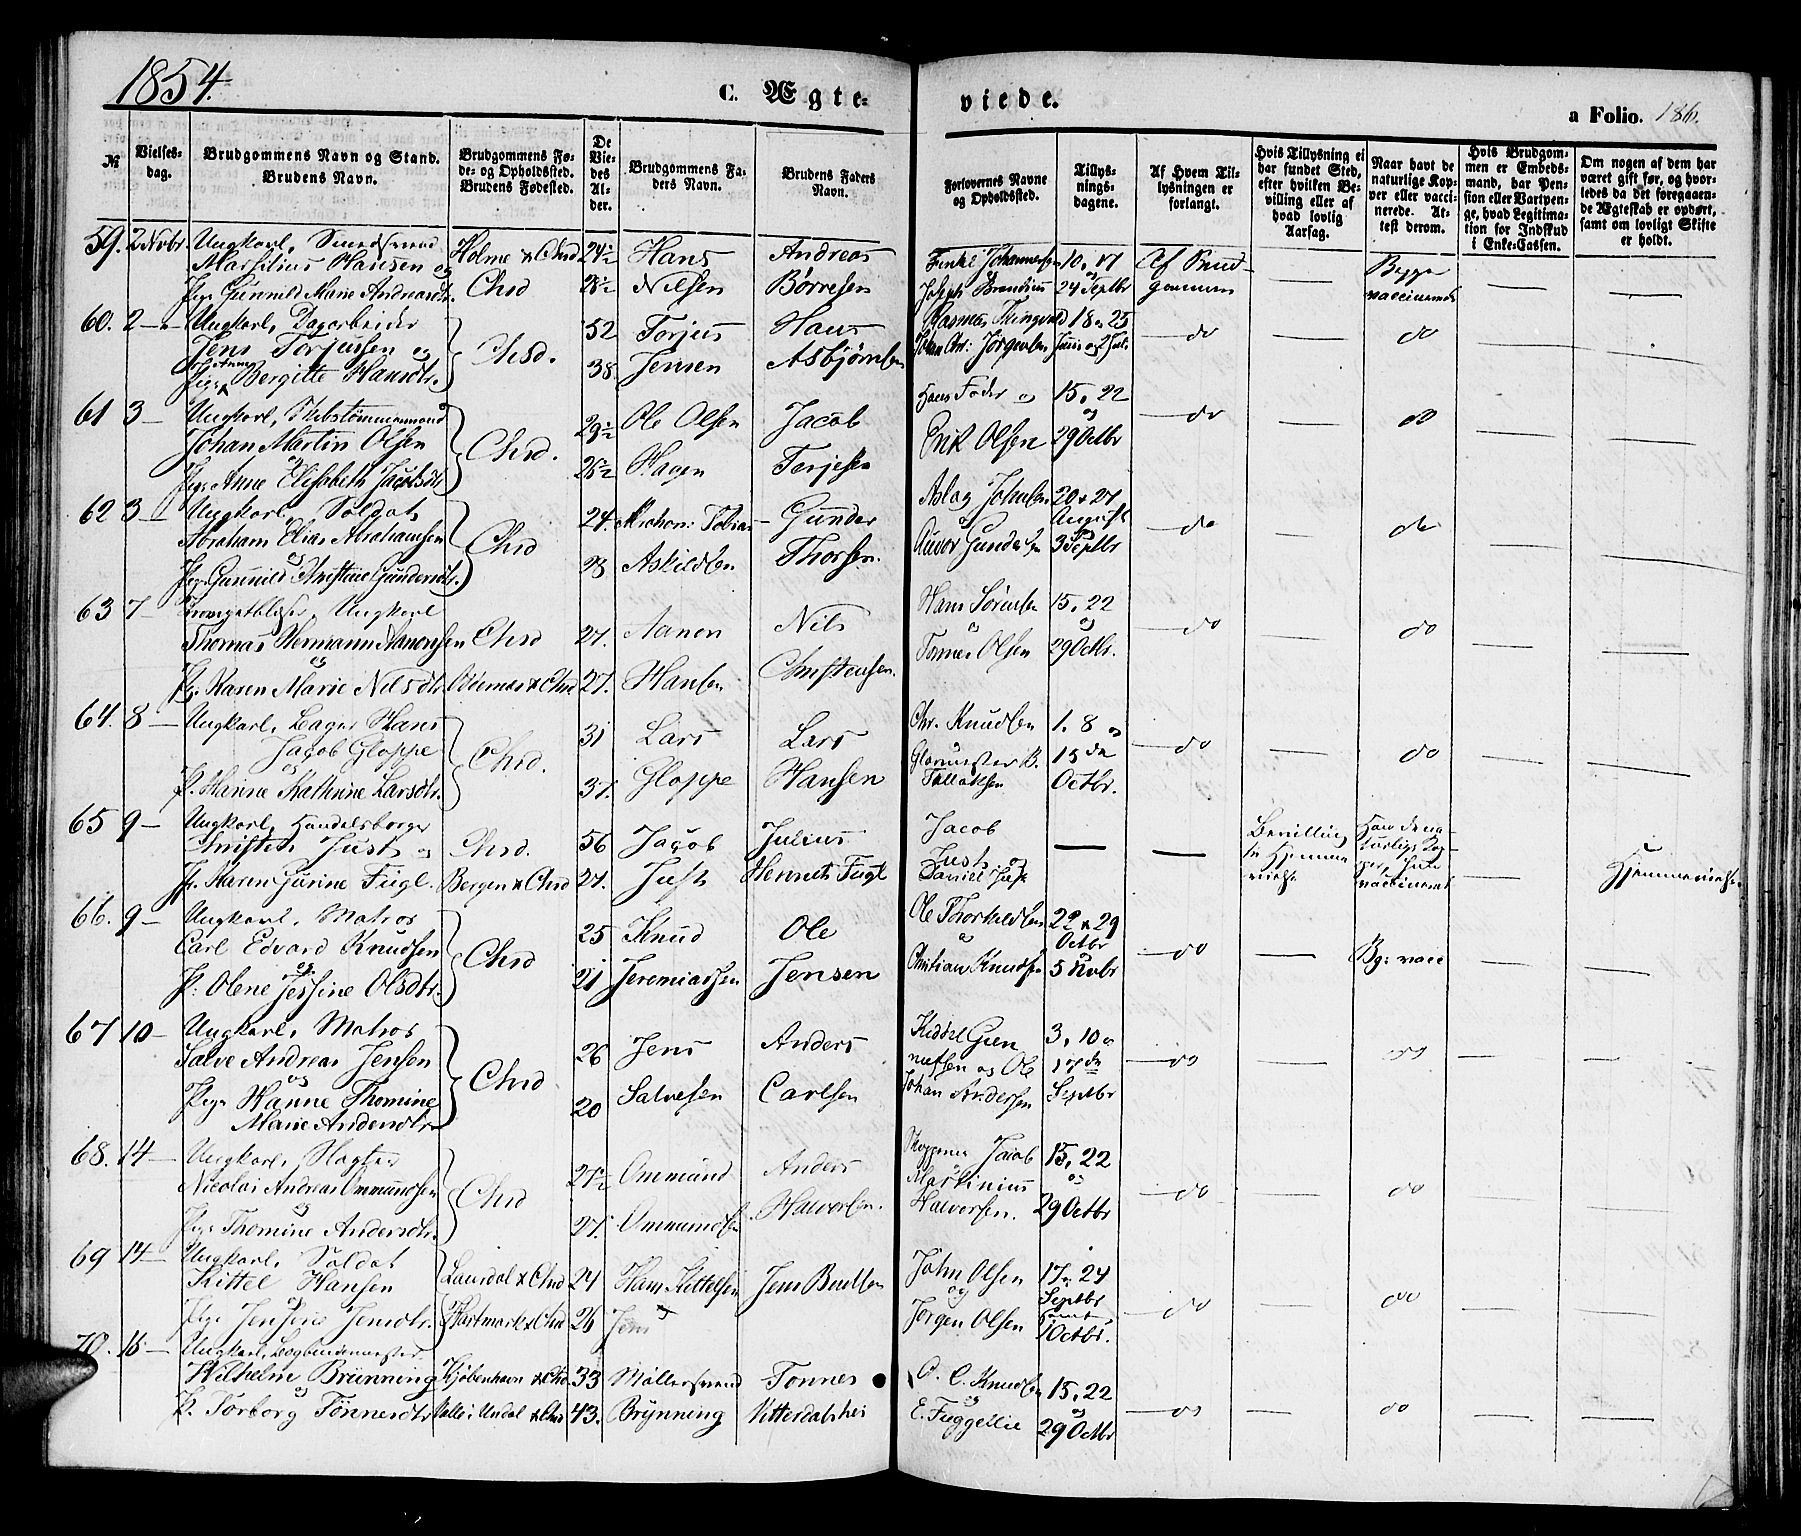 1854.
C. Ægte-
viede.
a Folio. 186.
№
Vielses-
dag.
Brudgommens Navn og Stand.
Brudens Navn.
Brudgommens Fø-
de- og Opholdssted.
Brudens Fødested.
De
Vie-
des
Al-
der.
Brudgommens Fa-
ders Navn.
Brudens Faders
Navn.
Forlovernes Navne
og Opholdssted.
Tillys-
nings-
dagene.
Af Hvem Til-
lysningen er
forlangt.
Hvis Tillysning ei
har fundet Sted,
efter hvilken Be-
villing eller af
hvad lovlig
Aarsag.
Naar havt de
naturlige Kop-
per eller vacci-
nerede. At-
test derom.
Hvis Brudgom-
men er Embeds-
mand, har Pen-
sion eller Vartpen-
ge, hvad Legitima-
tion for Indskud
i Enke-Cassen.
Om nogen af dem har
været gift før, og hvor-
ledes da det foregaaen-
de Ægteskab er ophørt,
samt om lovligt Skifte
er holdt.
59. 2 Novbr. Ungkarl,
Marsilius Hansen og
Pige Gunnild Marie Andreasdtr.
Holme & Chrd
Chrd
24½
28½
Hans
Nilsen
Andreas
Børresen
Johannesen
Joseph
10, 17
24 Septbr
Af Brud-
gommen
Begge
vaccinerede
60. 2 — Ungkarl, Dagarbeider
Jens Torjussen og
Pige Bergitte Hansdtr.
Chsd.
52
38.
Torjus
Jensen
Hans
Asbjørnsen
Rasmus
Johan Chr: Jörgensen
18 & 25
Juni og 2 Juli
do
do
61 3 — Ungkarl, Skibstømmermand
Johan Martin Olsen
og
Pige Anne Elisabeth Jacobsdtr
Chrd.
29½
26½
Ole Olsen
Hagen
Jacob
Terjesen
Hans Foder og
Erik Olsen
15, 22
og
29 Octbr
do
do
62 3 — Ungkarl, Soldat
Abraham Elias Abrahamsen
og
Pige Gunnild Kristine Gundersdtr.
Chrd
24.
23
Abraham Tobias
Askildsen
Gunder
Thorsen.
Aslag Johnsen
og
Auvor Gundersen
20 & 27
August
3 Septbr
do
do
63 7 — Ungkarl
Thomas Hermann Aanonsen
og
P. Karen Marie Nilsdtr.
Chrd
Oddernes & Chrd
27.
27.
Aanon
Hansen
Nils
Christensen.
Hans Sørensen
og
Tønnes Olsen
15, 22
og
29 Octbr.
do
do
64. 8 — Ungkarl, Bager Hans
Jacob Gloppe
og
P. Hanne Kathrine Larsdtr.
Chrd.
31
37.
Lars
Gloppe
Lars
Hansen
Chr. Knudsen
og
Glarmester B.
Tallaksen
1, 8 og
15 de
Octbr.
do
do
65 9 — Ungkarl, Handelsborger
Just og
Pg. Karen Gurine Fugl.
Chrd.
Bergen & Chrd
56
27.
Jacob
Just
Julius
Henrich Fugl
Jacob
Just og
Daniel Just
Bevilling
til Hjemme
vielse
Han de na-
turlige Kop-
per,
vaccineret
Hjemmevielse
66. 9 — Ungkarl, Matros
Carl Edvard Knudsen
og
P: Olene Jessine Olsdtr.
Chrd
25
21
Knud
Jeremiassen
Ole
Jensen
Ole Thorkildsen
og
Christian Knudsen
22 & 29
Octbr
5 Novbr
do
Bg. vacc
67 10 — Ungkarl, Matros
Salve Andreas Jensen
og
Pige Hanne Thomine
Marie Andersdtr.
Chrd
26
20
Jens
Salvesen
Anders
Carlsen
Kiddel Gun
nufsen og Ole
Johan Andersen
3, 10 og
17 de
Septbr
do
do
68. 14 — Ungkarl, Slagter
Nicolai Andreas Ommundsen
og
Pige Thomine Andersdtr.
Chrd
27½
27.
Ommund
Ommundsen
Anders
Halvorsen.
Jacob
og
Martinius
Halvorsen.
15, 22
og
29 Octbr
do
do
69 14 — Ungkarl, Soldat
Kittel Hansen
og
Pige Jensine Jensdtr.
Laudal & Chrd
Hartmark & Chrd
24
26
Hans Kittelsen
Jens
Jens Buelsen
John Olsen
og
Jørgen Olsen
17, 24
Septbr
samt
1 Octbr.
do
do
70. 16 — Ungkarl, Bogbindermester
Wilhelm Brünning
og
P. Torborg Tönnesdtr
Kjøbenhavn & Chrd.
Valle i Undal & Chrd
33
43.
Møllersvend
Brÿnning
Tønnes
Vitterdalshei
O. C. Knudsen
og
E. Fuggellie
15, 22
og
29 Octbr
do
do